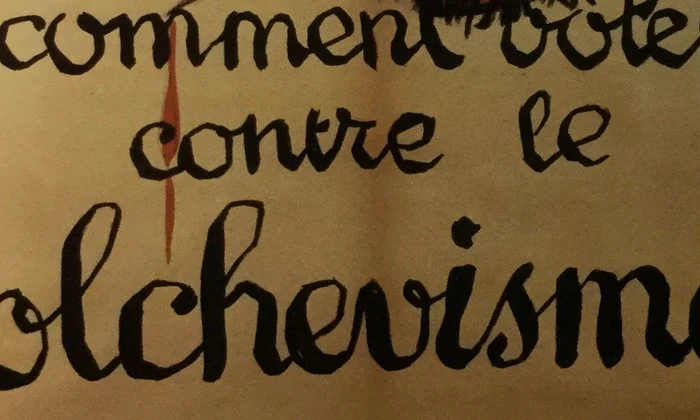 comment vote
contre le
olchevisme